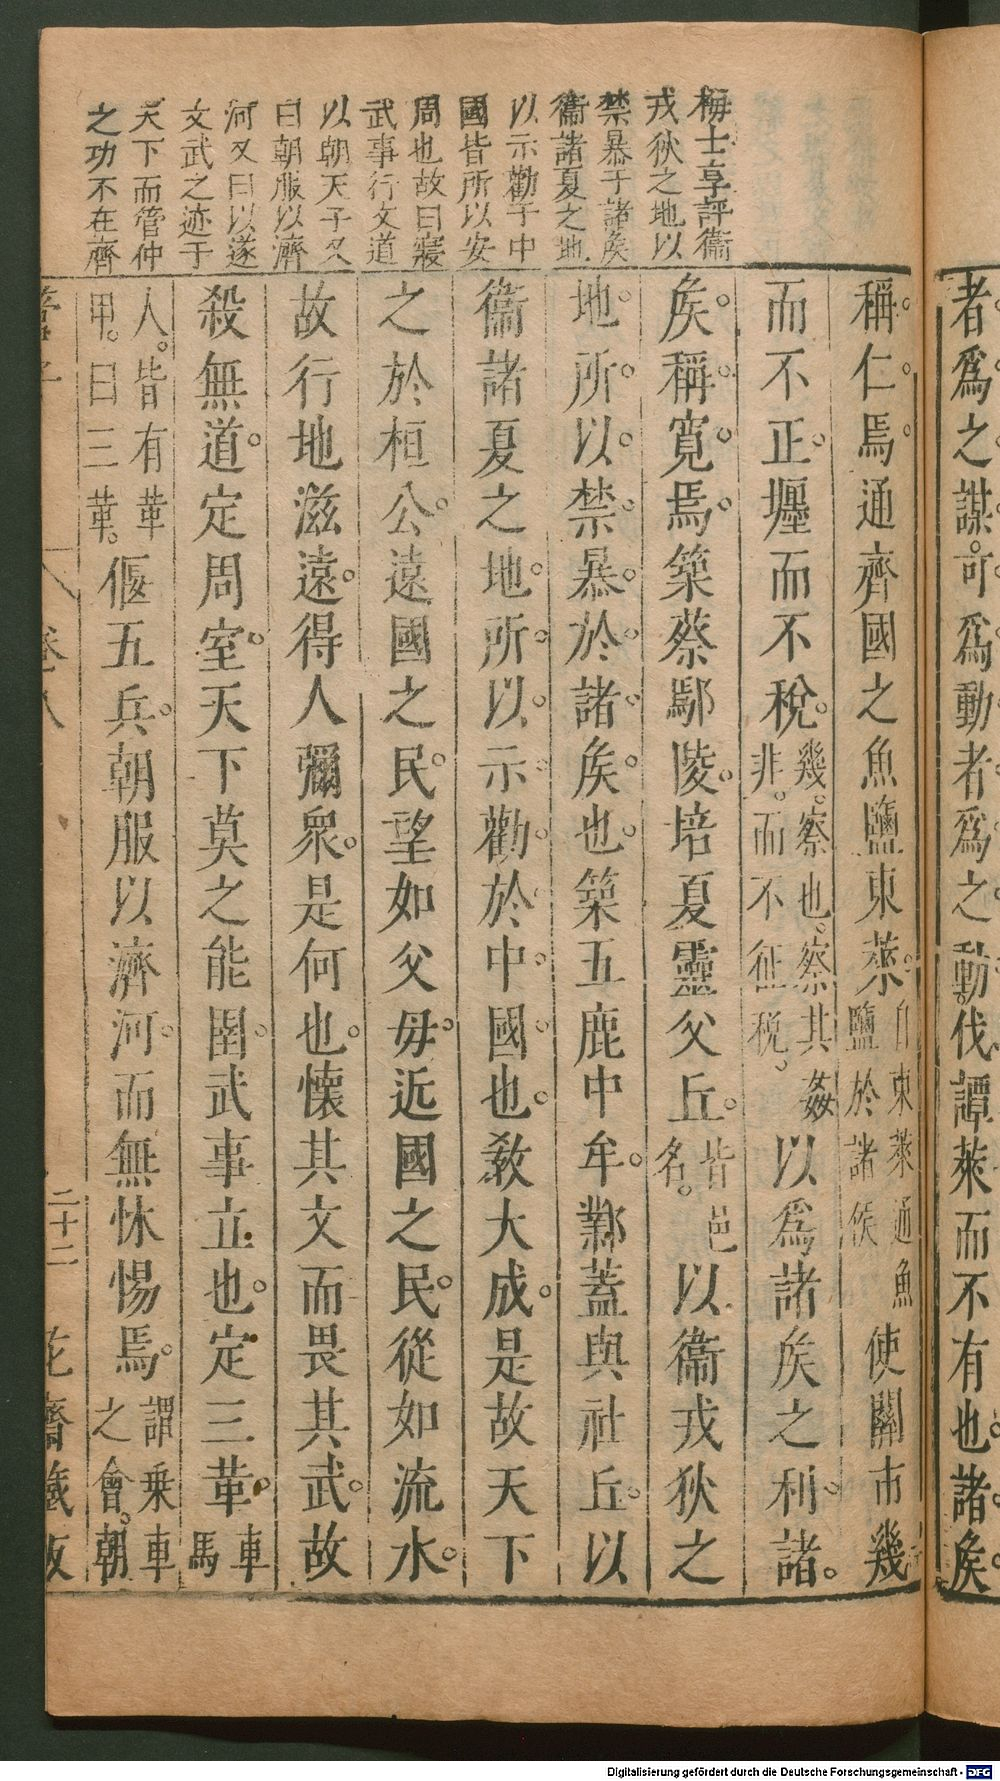 者爲之謀可爲動者爲之動伐譚萊而不有也諸矦
梅士享評衞
戎狄之地以
禁暴于諸矦
衞諸夏之地
以示勸于中
國皆所以安
周也故曰寢
武事行文道
以朝天子又
曰朝服以濟
河又曰以遂
文武之迹于
天下而管仲
之功不在齊
稱仁焉通齊國之魚鹽東萊自東萊通魚鹽於諸侯使關市幾
而不正壥而不稅幾察也察其姦非而不征税以爲諸矦之利諸
矦稱寬焉築蔡鄢陵培夏靈父丘皆邑名以衞戎狄之
地所以禁暴於諸矦也築五鹿中牟鄴蓋與社丘以
衞諸夏之地所以示勸於中國也敎大成是故天下
之於桓公遠國之民望如父母近國之民從如流水
故行地滋遠得人彌衆是何也懷其文而畏其武故
殺無道定周室天下莫之能圉武事立也定三革車馬
人皆有革甲曰三革偃五兵朝服以濟河而無怵惕焉謂乘車之會朝
管子
卷八
二十二
花齋藏板
Digitalisierung gefördert durch die Deutsche Forschungsgemeinschaft - DFG